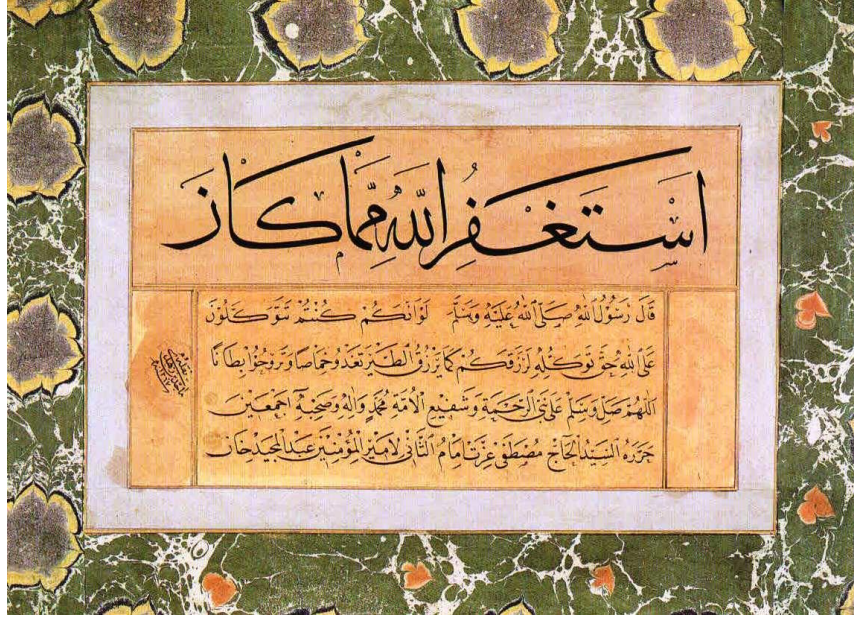 استغفر الله مما كان
قال رسول الله صلى الله عليه وسلم لو انكم كنتم تتوكلون
على الله حق توكله لرزقكم كما يرزق الطير تغدو خماصا وتروحوا بطانا
اللهم صل وسلم على نبى الرحمة وشفيع الامة محمد واله وصحبه اجمعين
حرره السيد الحاج مصطفى عزت امام الثانى لامير المؤمنين عبد المجيد خان